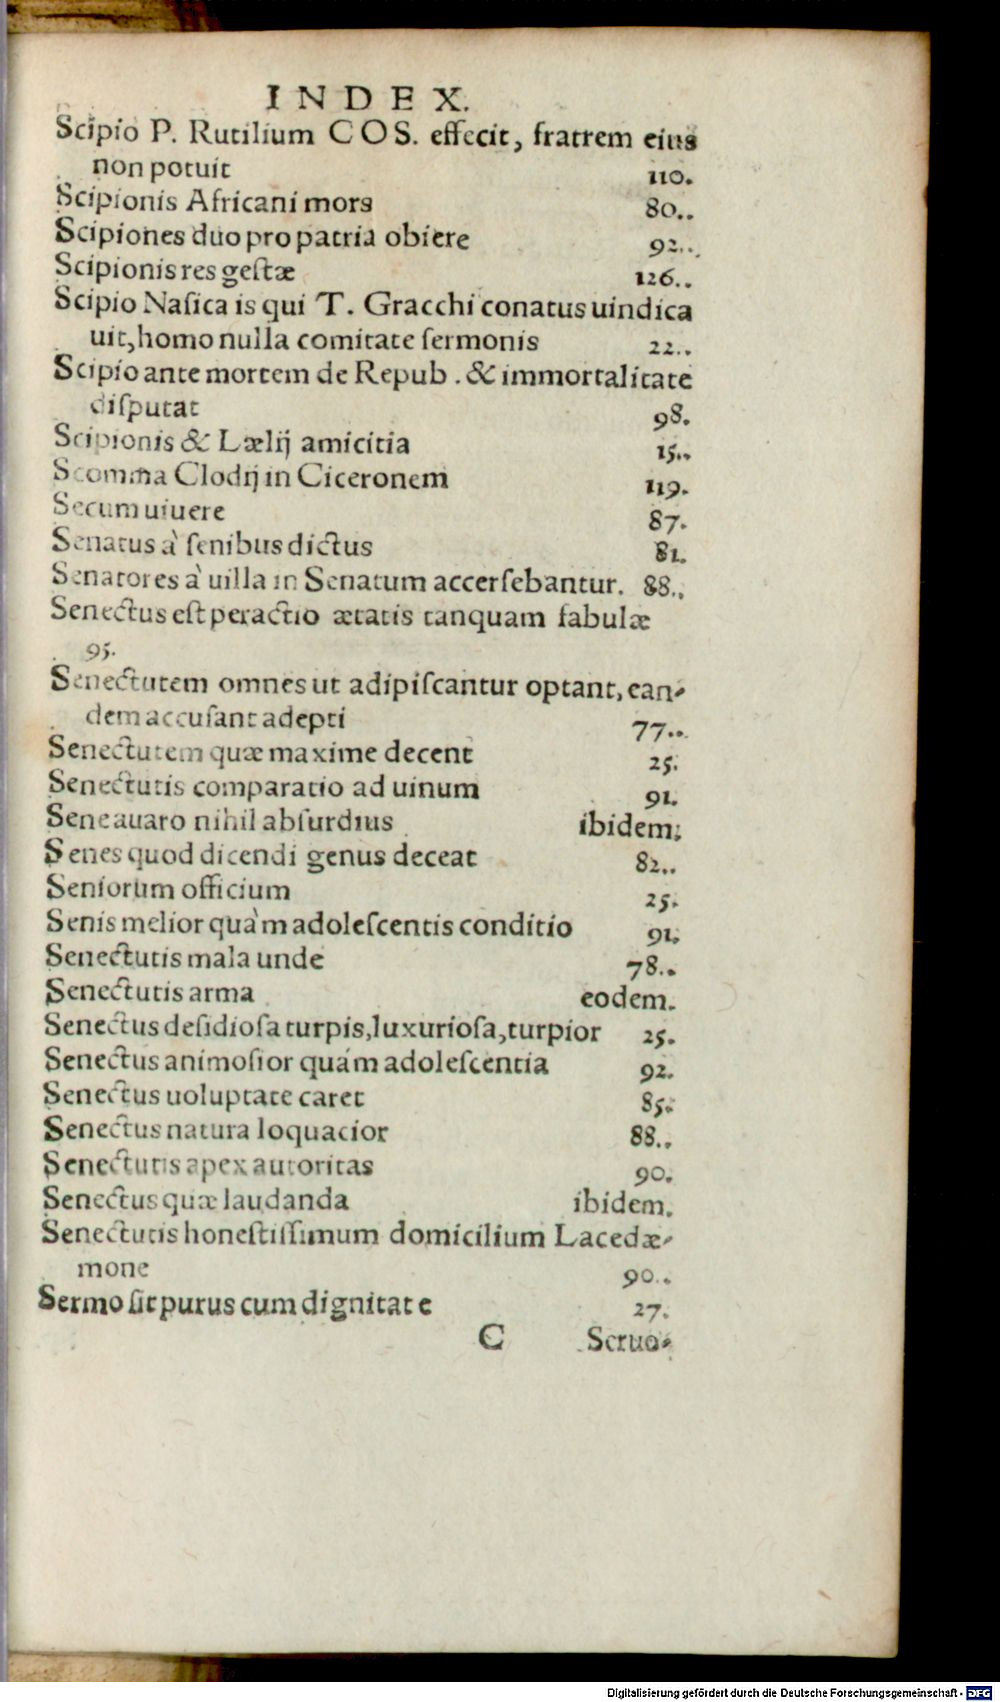 INDEX.
Scipio P. Rutilium COS. effecit, fratrem eius
non potuit 110.
Scipionis Africani mors 80..
Scipiones duo pro patria obiere 92..
Scipionis res gestæ 126..
Scipio Nasica is qui T. Gracchi conatus uindica
uit, homo nulla comitate sermonis 22..
Scipio ante mortem de Repub. & immortalitate
disputat 98.
Scipionis & Lælij amicitia 15..
Scomma Clodij in Ciceronem 119.
Secum uiuere 87.
Senatus à senibus dictus 81.
Senatores à uilla in Senatum accersebantur. 88..
Senectus est peractio ætatis tanquam fabulæ
95.
Senectutem omnes ut adipiscantur optant, ean-
dem accusant adepti 77..
Senectutem quæ maxime decent 25.
Senectutis comparatio ad uinum 91.
Sene auaro nihil absurdius ibidem.
Senes quod dicendi genus deceat 82..
Seniorum officium 25.
Senis melior quàm adolescentis conditio 91.
Senectutis mala unde 78..
Senectutis arma eodem.
Senectus desidiosa turpis, luxuriosa, turpior 25.
Senectus animosior quám adolescentia 92.
Senectus uoluptate caret 85.
Senectus natura loquacior 88..
Senectutis apex autoritas 90.
Senectus quæ laudanda ibidem.
Senectutis honestissimum domicilium Lacedæ-
mone 90..
Sermo sit purus cum dignitate 27.
C Seruo-
Digitalisierung gefördert durch die Deutsche Forschungsgemeinschaft - DFG